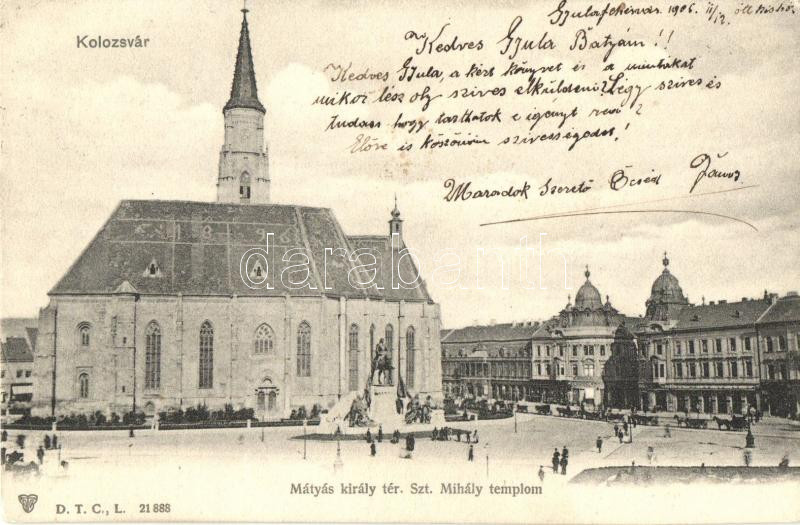 Gyulafehérvár 1906. II/12.
Kolozsvár
Kedves Gyula Bátyám!!
Kedves Gyula, a kért könyvet és a mintákat
mikor lész oly szives elküldeni? Légy szives és
tudass hogy tarthatok e igényt
Előre is köszönöm szivességedet!
Maradok Szerető Öcséd János
1896
darabanth
Mátyás király tér. Szt. Mihály templom
D. T. C., L. 21888